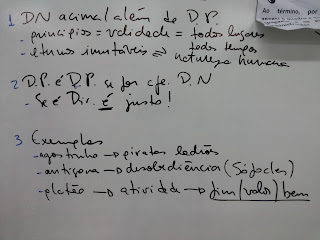 1 DN acima/além de D.P.
- princípios = validade = todos lugares
todos tempos
- eternos imutáveis => natureza humana
2 D.P. é D.P. se for cfe. D.N
- Se é Dir. é justo!
3 Exemplos
- agostinho → piratas ladrões
- antígona → desobediências (Sófocles)
- platão → atividade → fim/valor/bem
Ao término, por